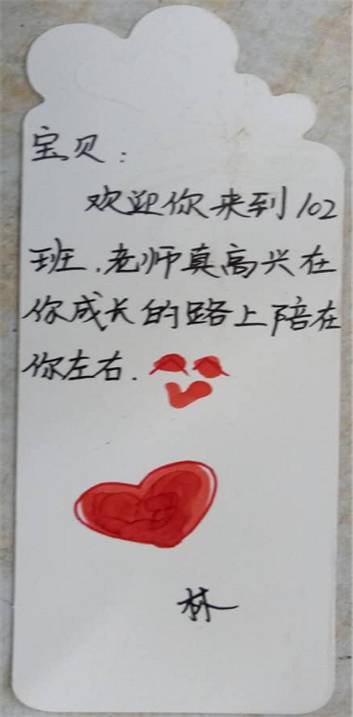 宝贝：
欢迎你来到102
班.老师真高兴在
你成长的路上陪在
你左右.
林